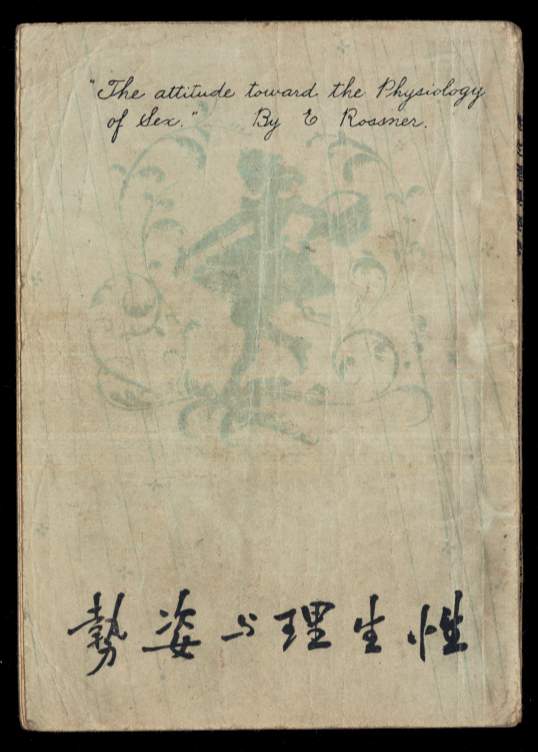 "The attitude toward the Physiology
of Sex." By E Rossner.
性生理与姿勢